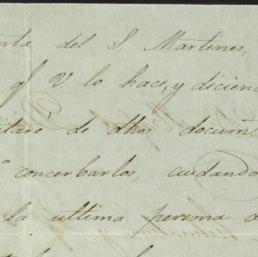 del S. Martines,
qe V. lo hace, y dicien
de dhos docum
concerbarlos, cuidando
la ultima persona a